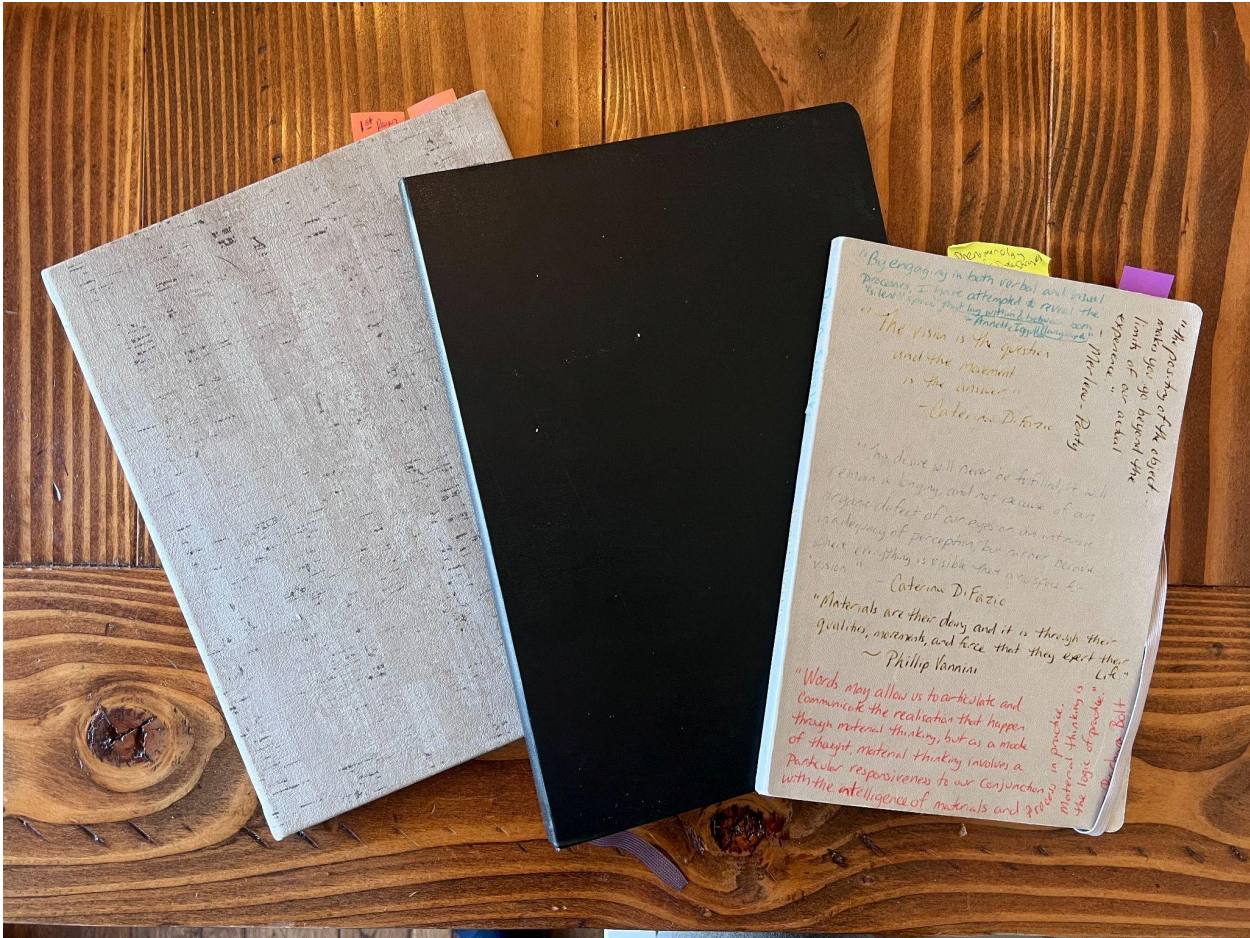 1st
"By engaging in both verbal and visual
processes, I have attempted to reveal the
"silent" space that lay within & between
"The vision is the question
and the movement
is the answer"
- Caterina DiFazio
"the positing of the object
makes you go beyond the
limits of our actual
experience"
- Merleau-Ponty
desire will never be fulfilled, it will
remain a longing, and not because of an
organic defect of our eyes or an intrinsic
inadequacy of perception, but rather because
where everything is visible there is no space for
vision"
- Caterina DiFazio
"Materials are their doing and it is through their
qualities, movements, and force that they exert their
Life"
~ Phillip Vannini
"Words may allow us to articulate and
communicate the realisation that happen
through material thinking, but as a mode
of thought, material thinking involves a
particular responsiveness to our conjunction
with the intelligence of materials and process in practice.
Material thinking is
the logic of practice."
Bolt